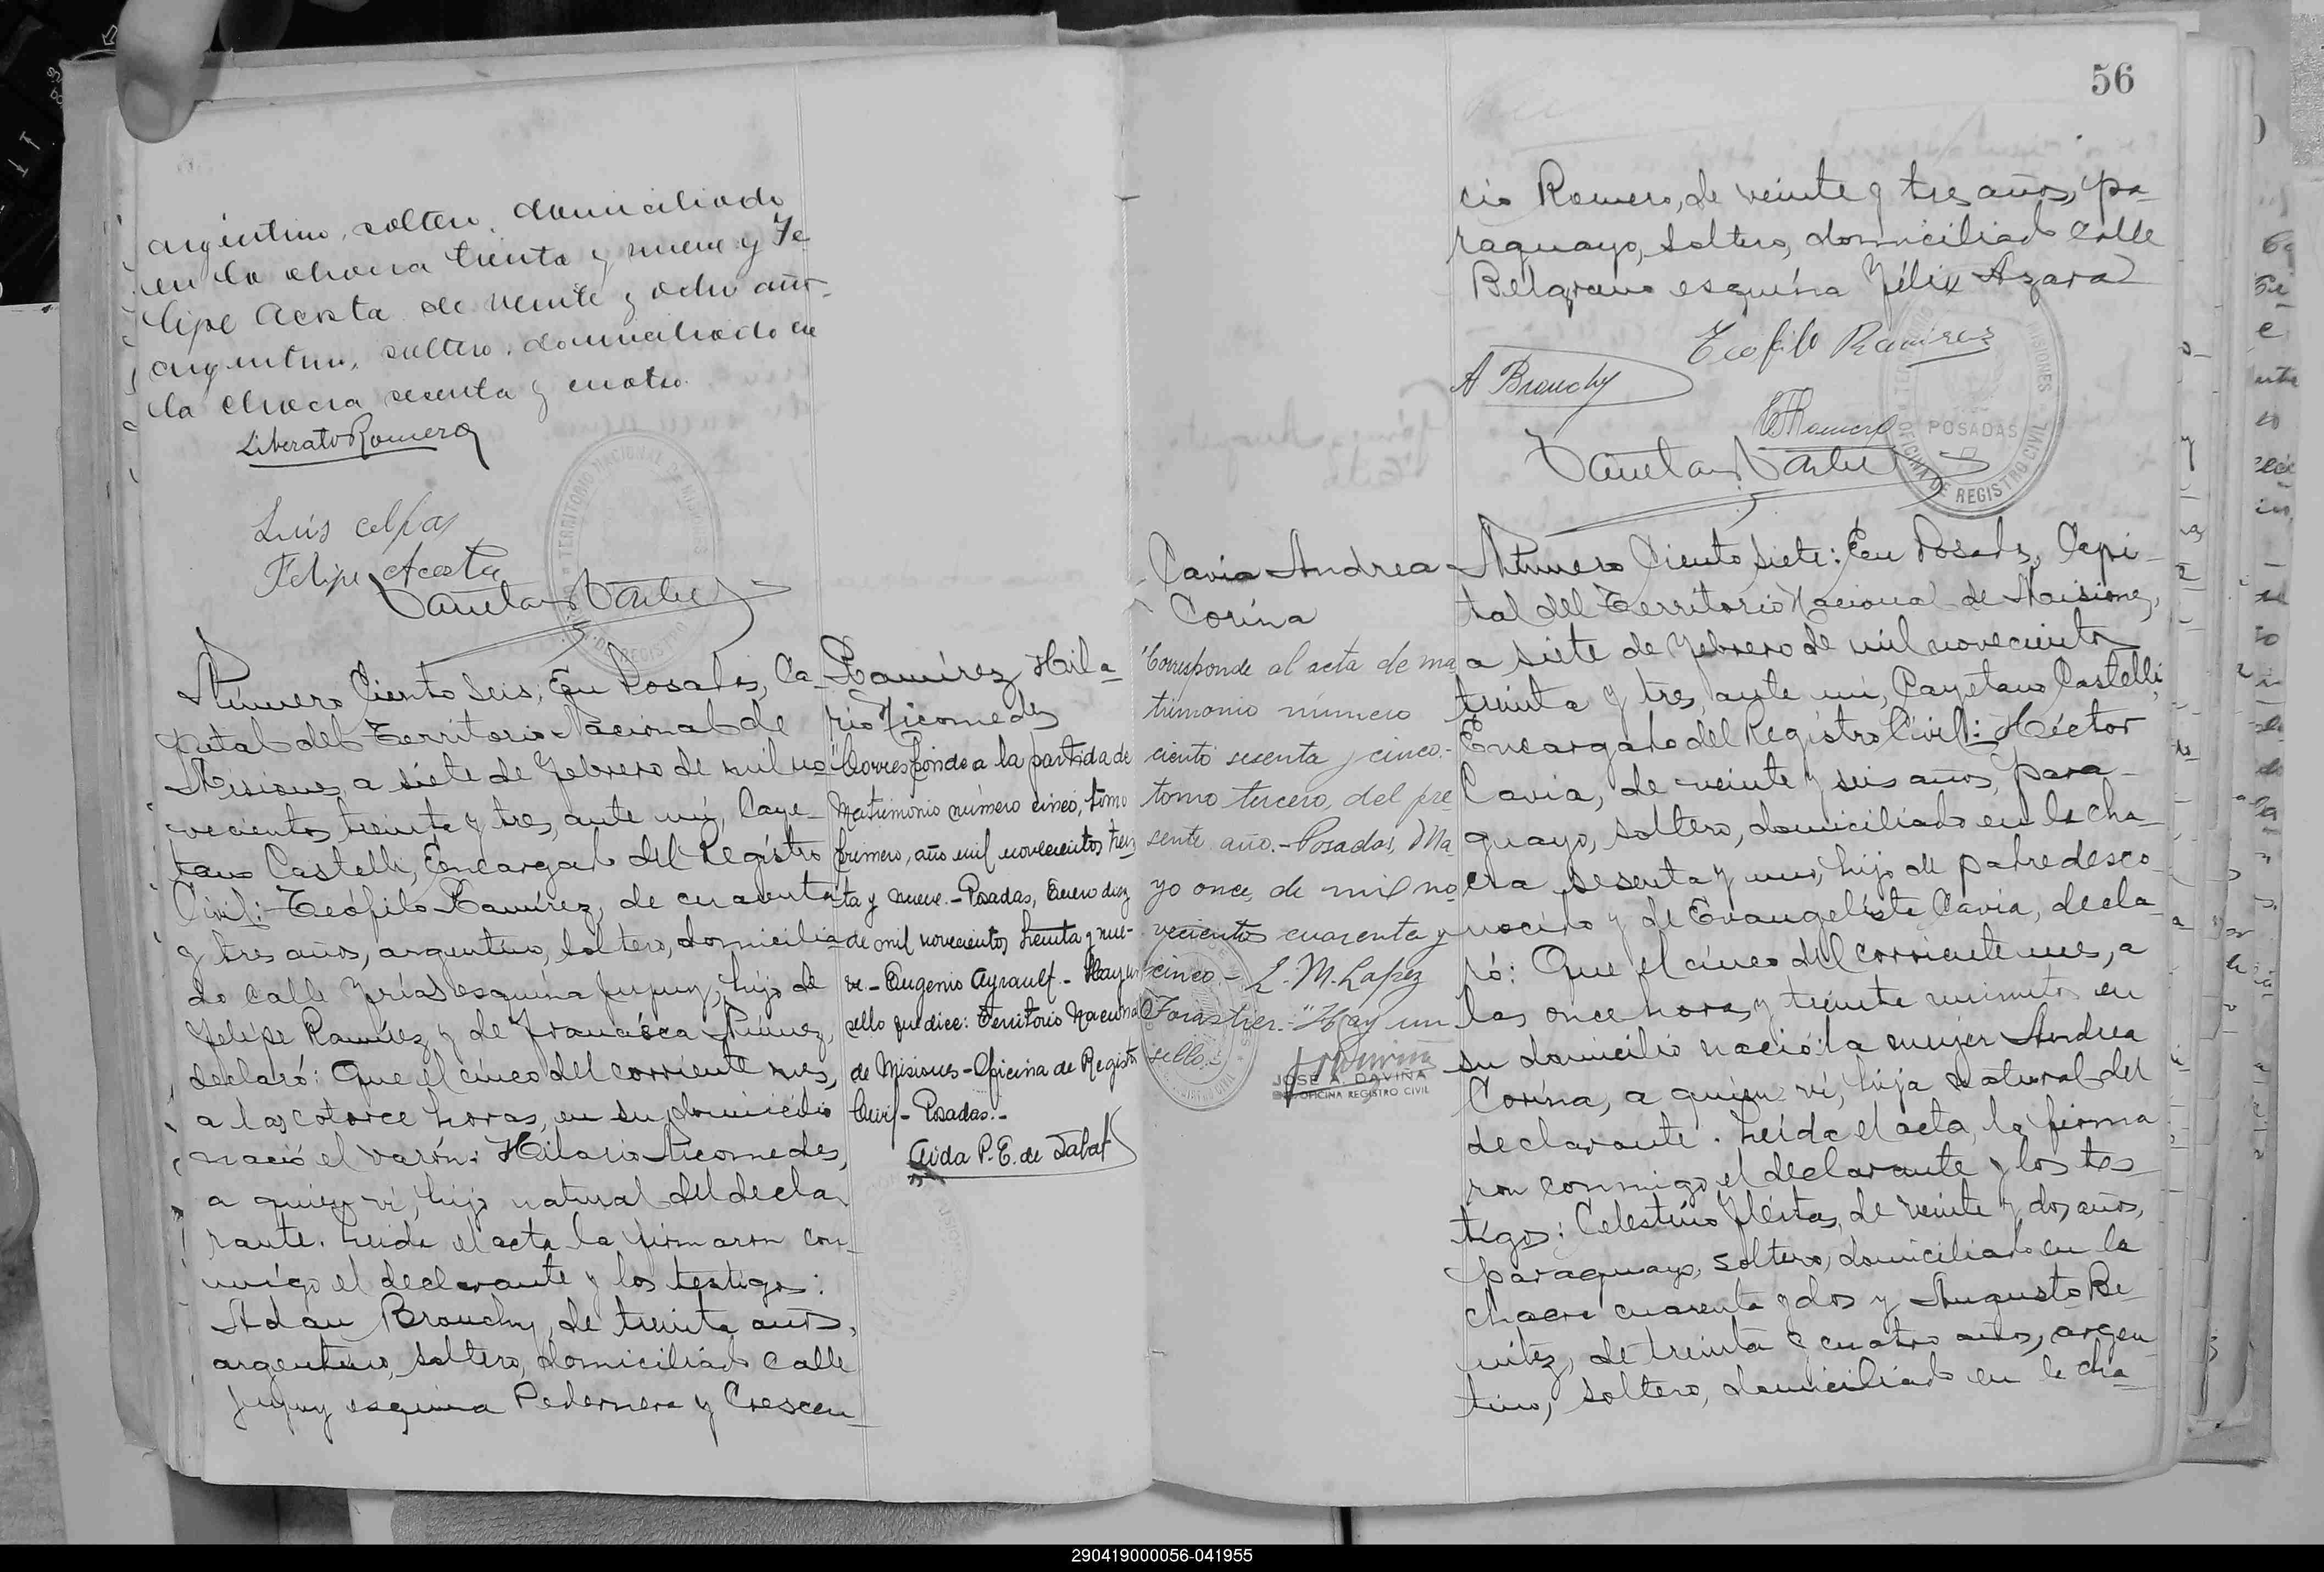 argentino, soltero, domiciliado
en la chacra treinta y nueve y Fe-
lipe Acosta de veinte y ocho años
argentino, soltero, domiciliado en
la chacra sesenta y cuatro.
Liberato Romero
Luis
Felipe Acosta
TERRITORIO NACIONAL DE MISIONES
DE REGISTRO
Número Ciento Seis: En Posadas, Ca-
pital del Territorio Nacional de
Misiones, a siete de Febrero de mil no-
vecientos treinta y tres, ante mí, Caye-
tano Castelli, Encargado del Registro
Civil: Teófilo Ramírez, de cuarenta
y tres años, argentino, soltero, domicilia-
do calle Frías esquina Jujuy, hijo de
Felipe Ramírez y de Francisca Núnez,
declaró: Que el cinco del corriente mes,
a las catorce horas, en su domicilio
nació el varón: Hilario Nicomedes,
a quien ví, hijo natural del decla-
rante. Leida el acta la firmaron con-
migo el declarante y los testigos:
Adan Brouchy, de treinta años,
argentino, soltero, domiciliado calle
Jujuy esquina Pedernera y Crescen-
Ramírez Hila-
rio Nicomedes
"Corresponde a la partida de
Matrimonio número cinco, tomo
primero, año mil novecientos trein
ta y nueve.- Posadas, Enero diez
de mil novecientos treinta y nue-
ve.- Eugenio Ayrault.- Hay un
sello que dice: Territorio Nacional
de Misiones - Oficina de Registro
Civil - Posadas.-
Aida P. E. de Tabat
56
cio Romero, de veinte y tres años, pa-
raguayo, soltero, domiciliado calle
Belgrano esquina Félix Azara
Teofilo Ramirez
A Brouchy
Romero
MISIONES
POSADAS
OFICINA DE REGISTRO CIVIL
Cavia Andrea
Corina
"Corresponde al acta de ma
trimonio número
ciento sesenta y cinco-
tomo tercero, del pre
sente año.- Posadas, Ma-
yo once, de mil no-
vecientos cuarenta y
cinco.- L. M. Lopez
Forastier.- "Hay un
sello.-
JOSE A. DAVIÑA
OFICINA REGISTRO CIVIL
Número Ciento siete: En Posadas, Capi-
tal del Territorio Nacional de Misiones,
a siete de Febrero de mil novecientos
treinta y tres, ante mí, Cayetano Castelli,
Encargado del Registro Civil: Héctor
Cavia, de veinte y seis años, para-
guayo, soltero, domiciliado en la cha-
cra sesenta y uno, hijo de padre desco-
nocido y de Evangelista Cavia, decla-
ró: Que el cinco del corriente mes, a
las once horas y treinta minutos en
su domicilio nació: la mujer Andrea
Corina, a quien ví, hija natural del
declarante. Leida el acta, la firma
ron conmigo el declarante y los tes-
tigos: Celestino Fleitas, de veinte y dos años,
paraguayo, soltero, domiciliado en la
chacra cuarenta y dos y Augusto Be-
nitez, de treinta y cuatro años, argen
tino, soltero, domiciliado en la cha-
290419000056-041955